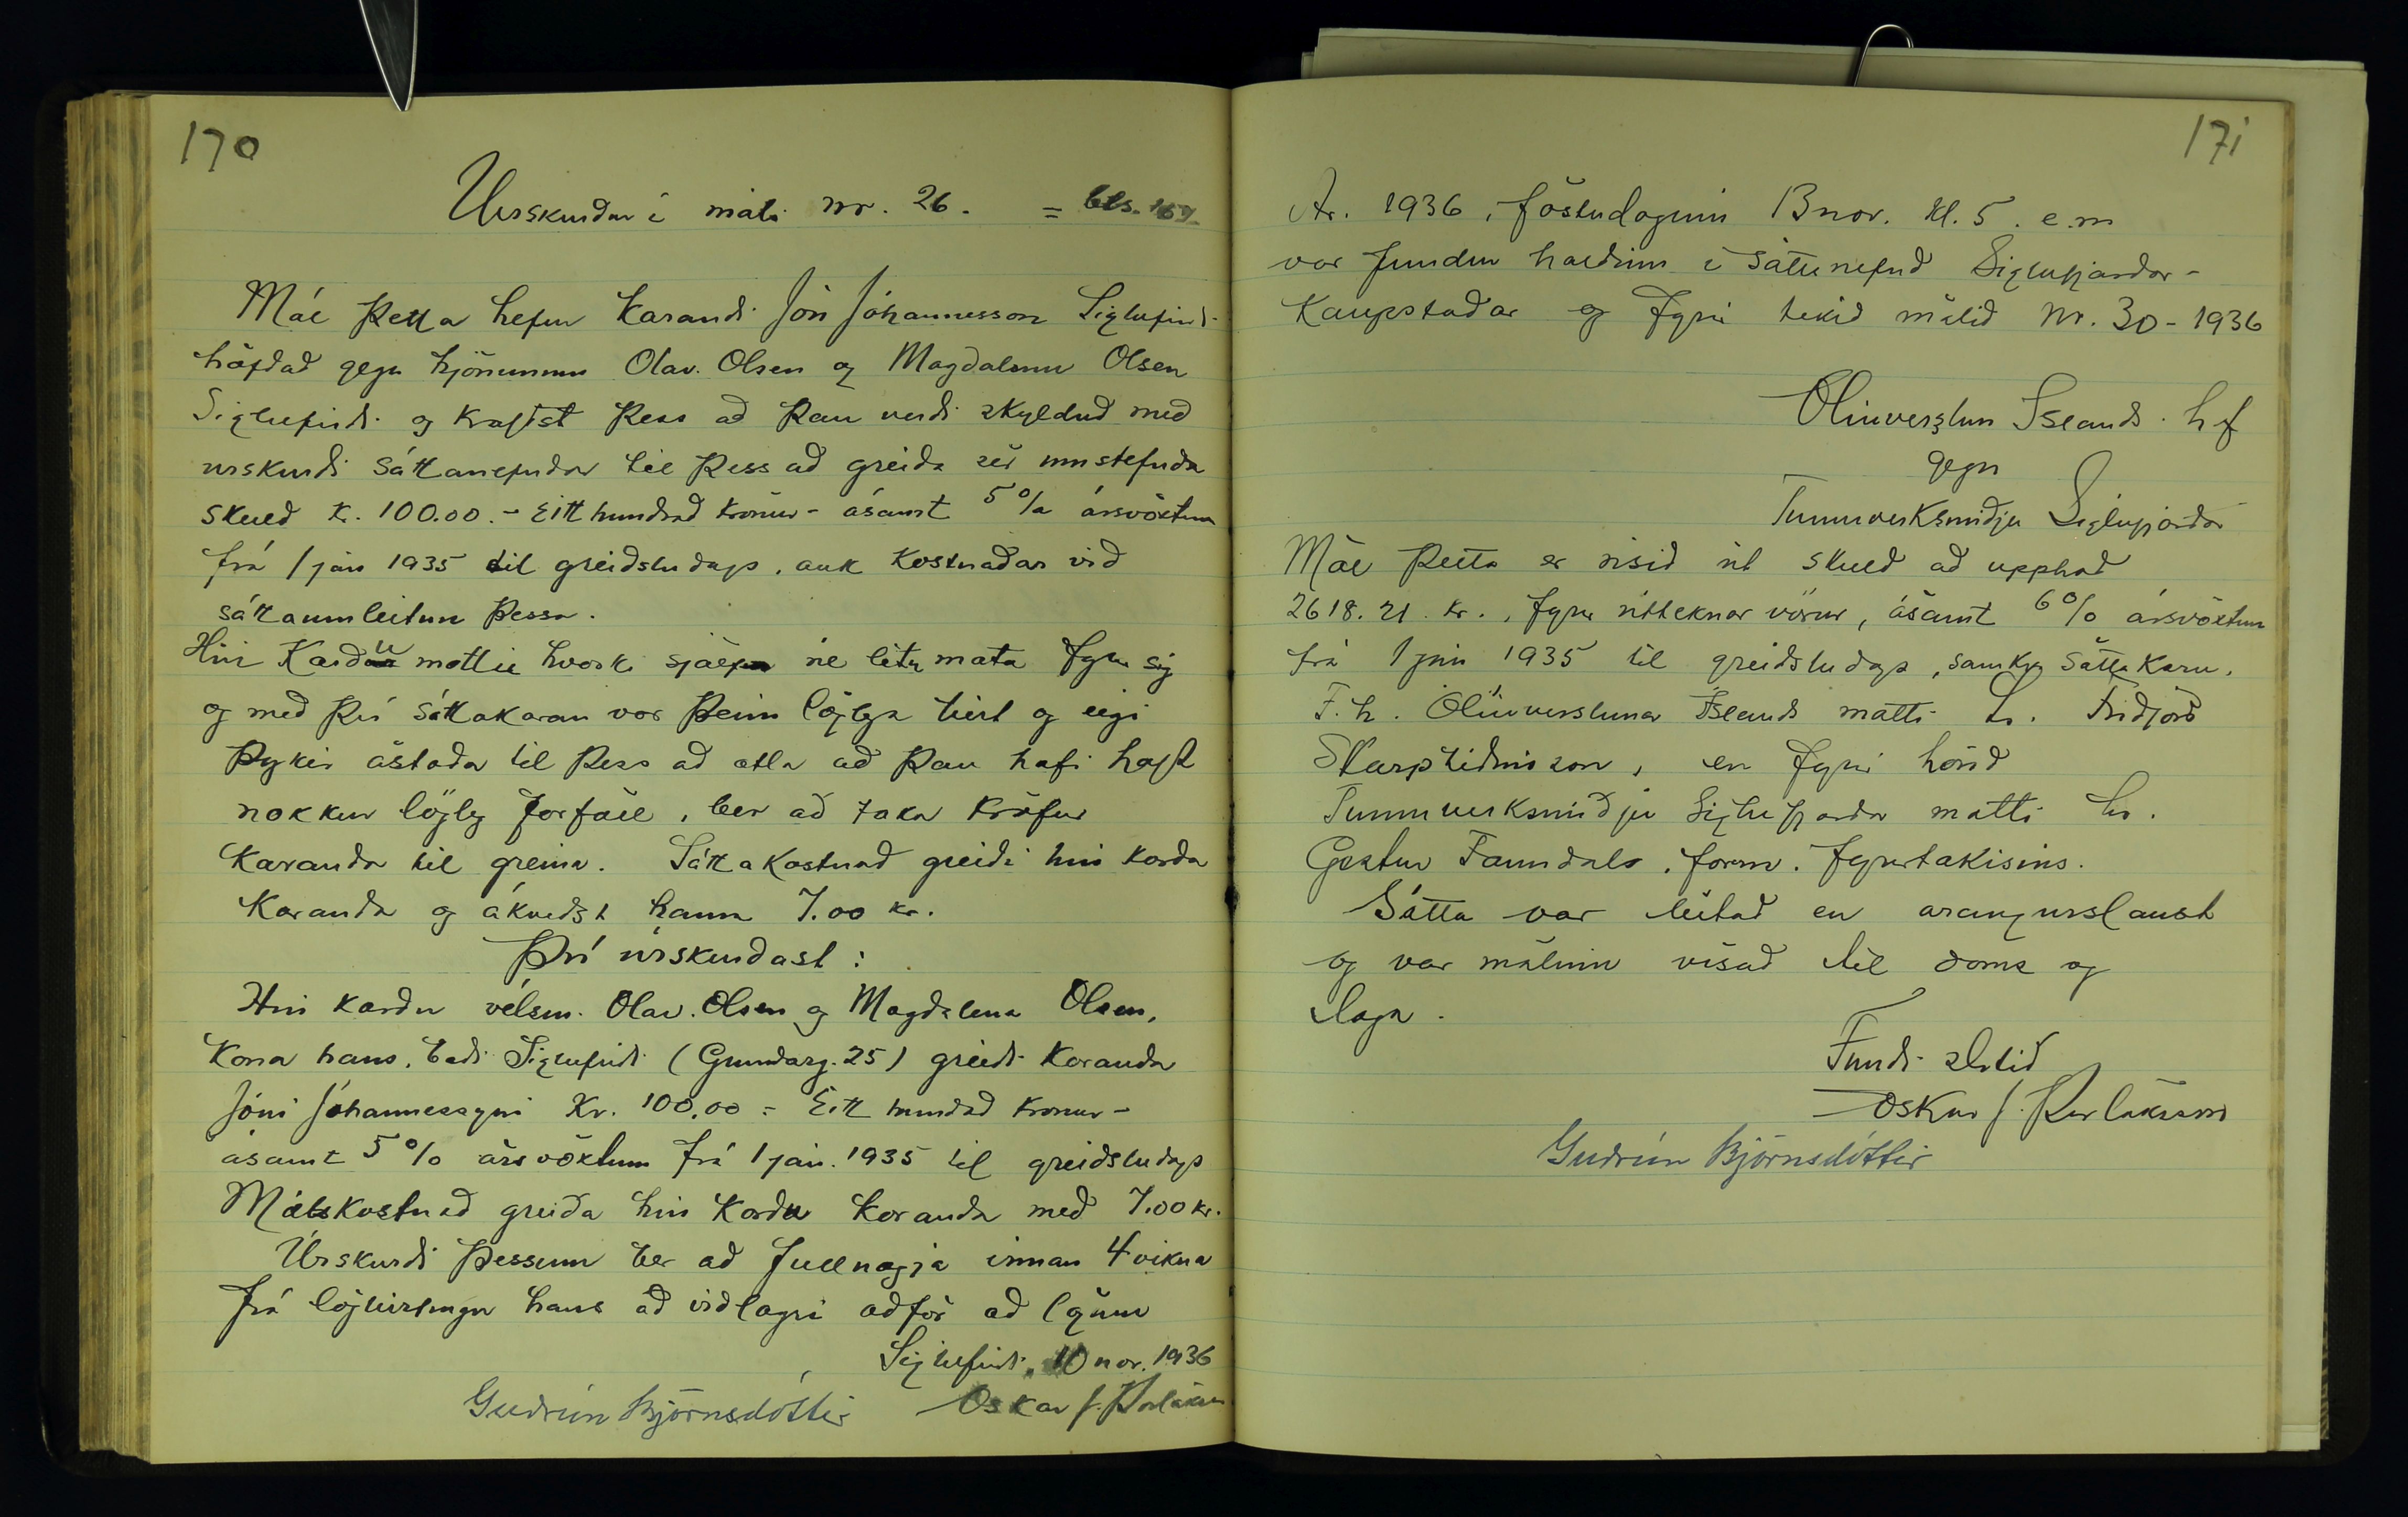 170
Úrskurður í máli nr. 26. = bls. 167
Mál þetta hefur kærandi Jón Jóhannesson Siglufirði
höfðað gegn hjónunum Olav. Olsen og Magdalenu Olsen
Siglufirði og krafist þess að þau verði skylduð með
úrskurði sáttanefndar til þess að greiða sér umstefnda
skuld kr. 100.00. - Eitt hundrað krónur - ásamt 5% ársvöxtum
frá 1 jan 1935 til greiðsludags, auk kostnaðar við
sáttaumleitun þessa.
Hin kærðu mættu hvorki sjálf né létu mæta fyrir sig
og með því sáttakæran var þeim löglega birt og eigi
þykir ástæða til þess að ætla að þau hafi haft
nokkur lögleg forföll, ber að taka kröfur
kæranda til greina. Sáttakostnað greiði hin kærða
kæranda og ákveðst hann 7.00 kr.
Því úrskurðast:
Hin kærðu vélsm. Olav. Olsen og Magdalena Olsen,
kona hans, bæði Siglufirði (Grundarg. 25) greiði kæranda
Jóni Jóhannessyni Kr. 100,00 = Eitt hundrað krónur -
ásamt 5% ársvöxtum frá 1 jan. 1935 til greiðsludags
Málskostnað greiða hin kærðu kæranda með 7.00 kr.
Úrskurði þessum ber að fullnægja innan 4 vikna
frá löglegri birtingu hans að viðlagri aðför að lögum
Siglufirði, 10 nov. 1936
Guðrún Björnsdóttir Oskar J. Þorláksson
171
Ár. 1936, föstudaginn 13 nov. kl. 5. e.m
var fundur haldinn í sáttanefnd Siglufjarðar-
kaupstaðar og fyrir tekið málið nr. 30 - 1936
Olíuverzlun Íslands h f
gegn
Tunnuverksmiðju Siglufjarðar
Mál þetta er risið út skuld að upphæð
2618.21 kr., fyrir útteknar vörur, ásamt 6% ársvöxtum
frá 1 jan 1935 til greiðsludags, samkv sáttakæru.
F. h. Olíuverslunar Íslands mætti hr. Friðjón
Skarphéðinsson, en fyrir hönd
Tunnuverksmiðju Siglufjarðar mætti hr.
Gestur Fanndal, form. fyrirtækisins.
Sátta var leitað en árangurslaust
og var málinu vísað til dóms og
laga.
Fundi slitið
Oskar J. Þorláksson
Guðrún Björnsdóttir